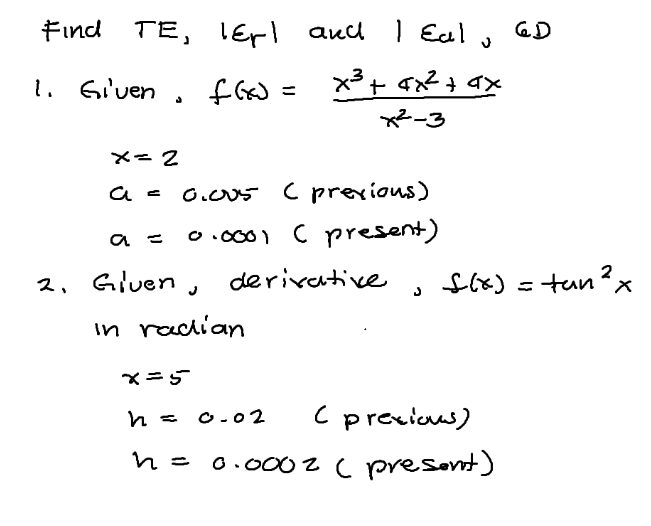 Find TE, |Er| and | Ea|, GD
1. Given, f(x) = x³ + 4x² + 4x
x²-3
x = 2
a = 0.005 ( previous)
a = 0.0001 ( present)
2. Given, derivative, f(x) = tan²x
in radian
x = 5
h = 0.02 ( previous)
h = 0.0002 ( present)